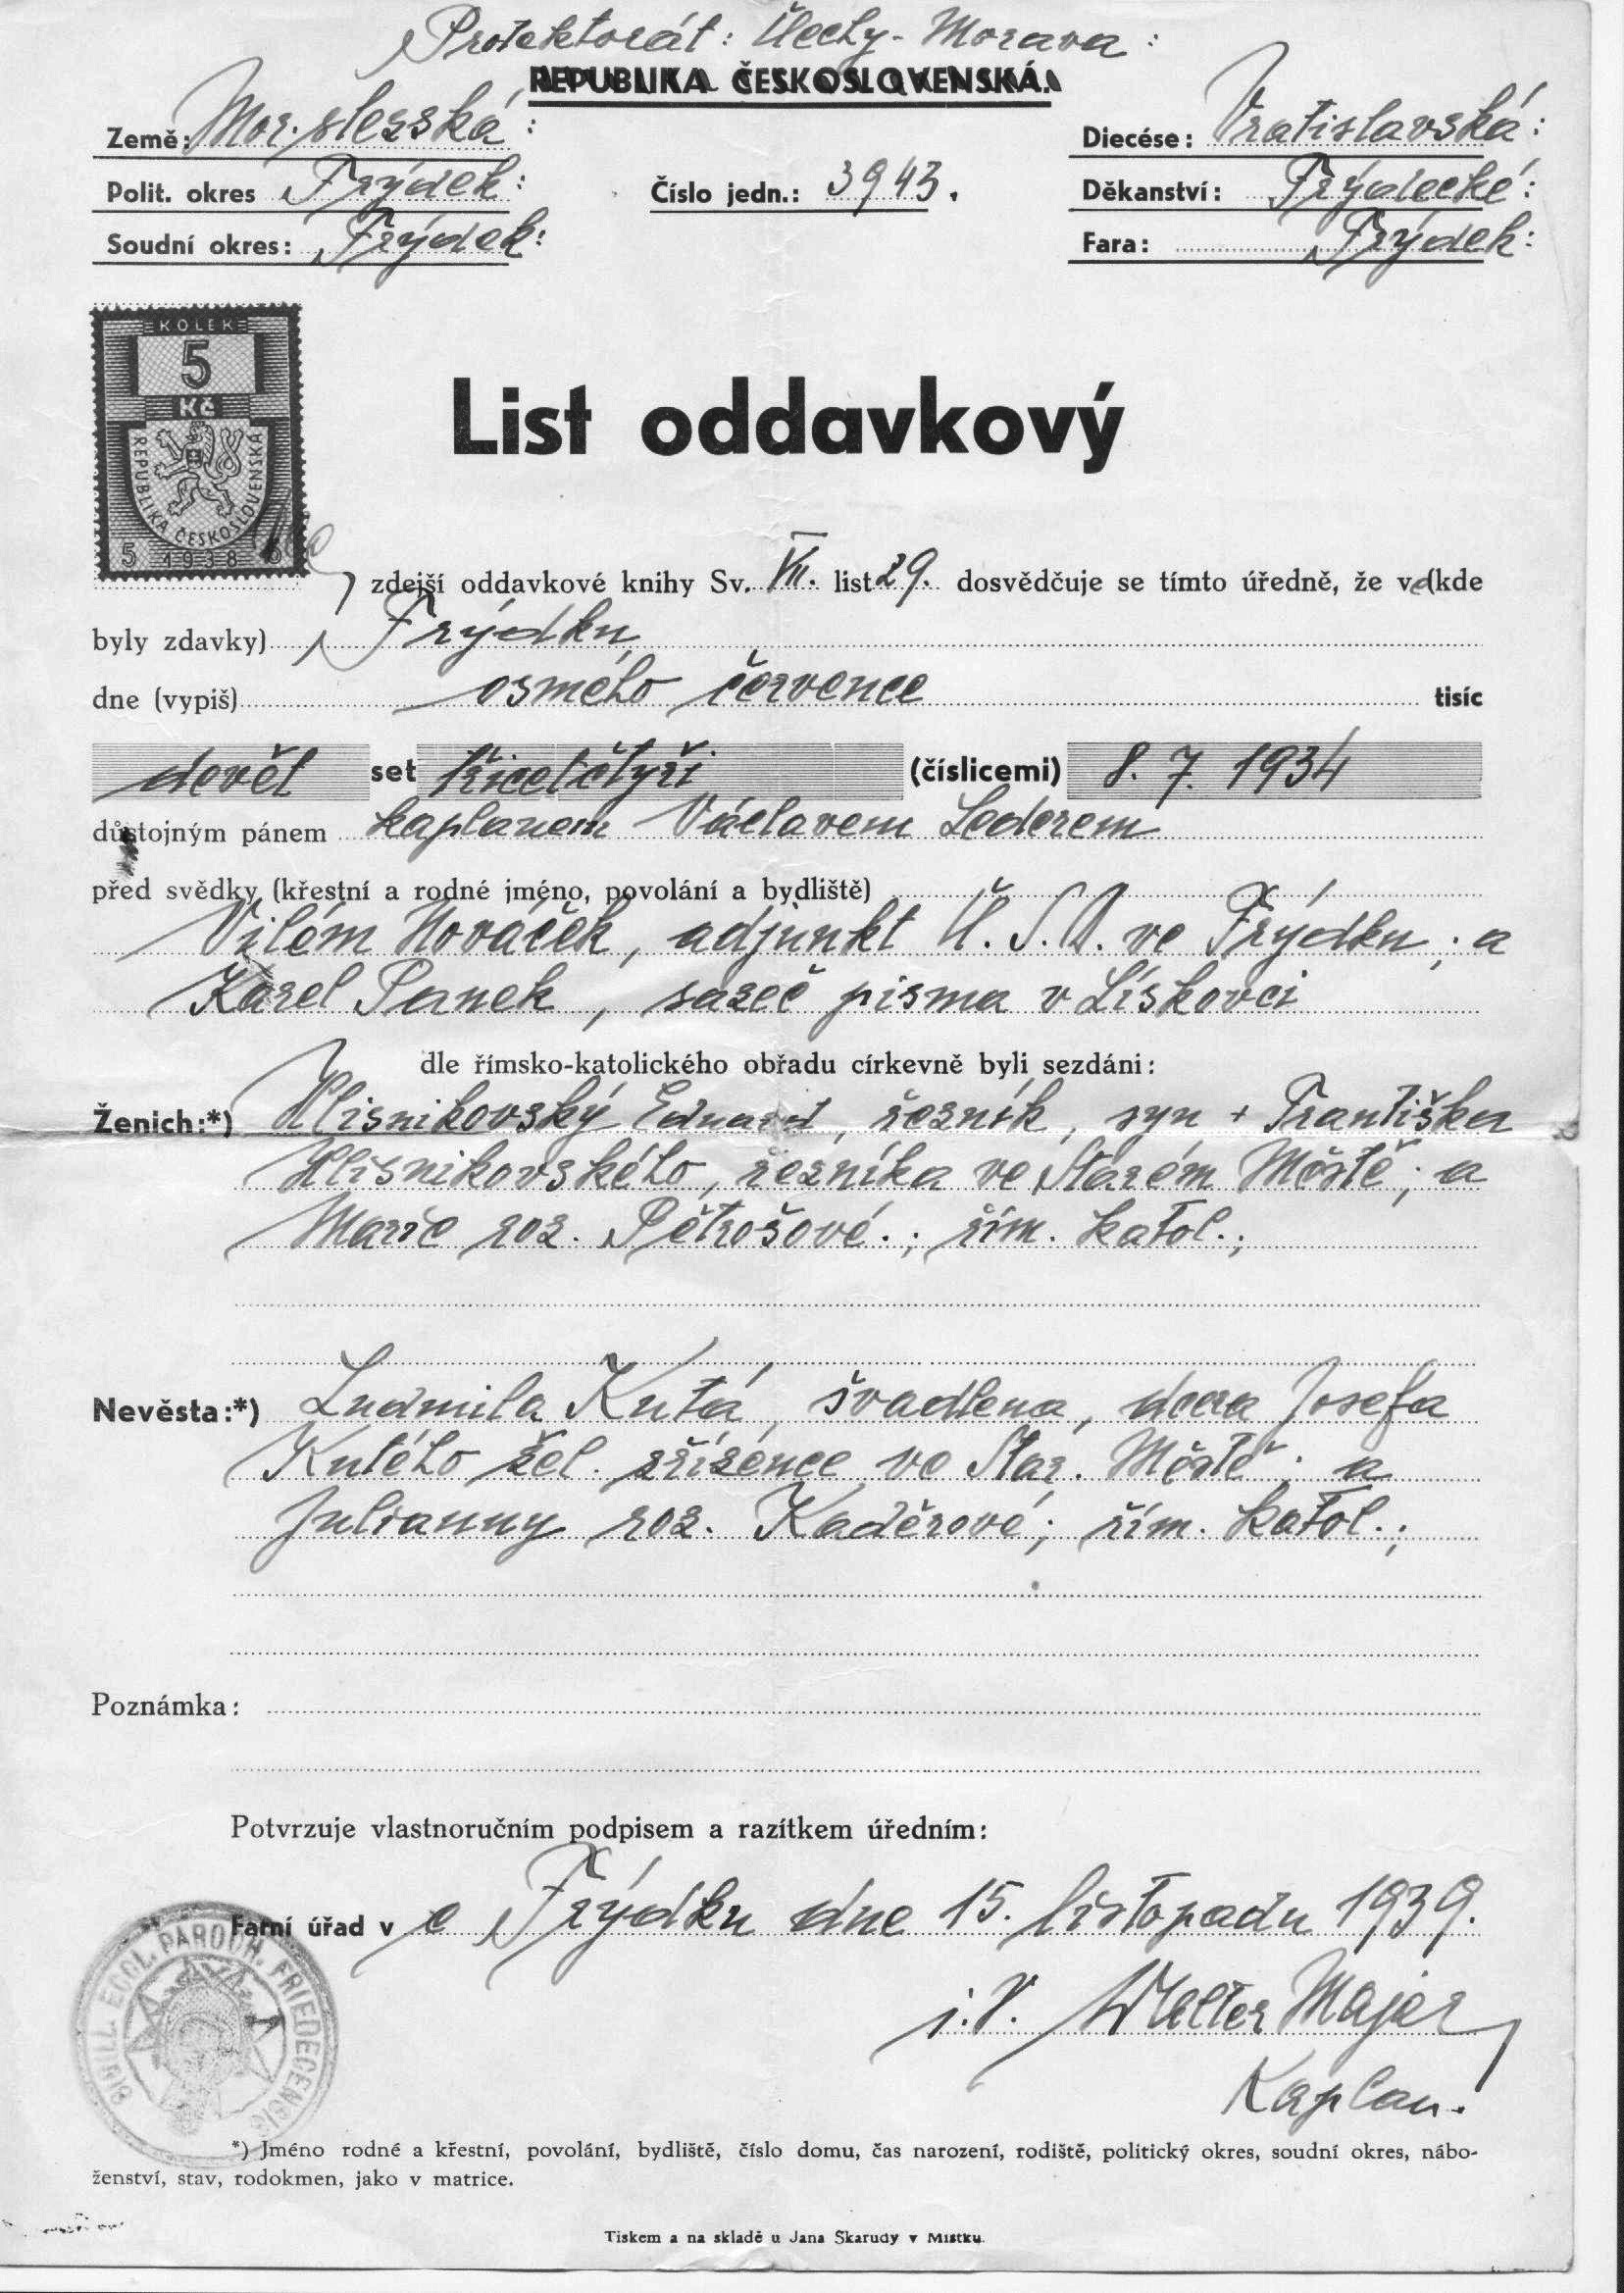 Protektorát: Čechy - Morava:
REPUBLIKA ČESKOSLOVENSKÁ.
Země: Mor. slezská:
Diecése: Vratislavská:
Polit. okres Frýdek:
Číslo jedn.: 3943.
Děkanství: Frýdecké:
Soudní okres: Frýdek:
Fara: Frýdek:
KOLEK
5
Kč
REPUBLIKA ČESKOSLOVENSKÁ
5 1938 5
List oddavkový
zdejší oddavkové knihy Sv. VII. list 29. dosvědčuje se tímto úředně, že ve (kde
byly zdavky) Frýdku
dne (vypiš) osmého července tisíc
devět set třicetčtyři (číslicemi) 8. 7. 1934
důstojným pánem kaplanem Václavem Lederem
před svědky (křestní a rodné jméno, povolání a bydliště)
Vilém Nováček, adjunkt Č. S. D. ve Frýdku; a
Karel Panek, sazeč písma v Lískovci
dle římsko-katolického obřadu církevně byli sezdáni:
Ženich:*) Hlisnikovský Eduard, řezník, syn + Františka
Hlisnikovského, řezníka ve Starém Městě; a
Marie roz. Pětrošové.; řím. katol.;
Nevěsta:*) Ludmila Kutá, švadlena, dcera Josefa
Kutého žel. zřízénce ve Star. Městě; a
Julianny roz. Kaděrové; řím. katol.;
Poznámka:
Potvrzuje vlastnoručním podpisem a razítkem úředním:
Farní úřad v e Frýdku dne 15. listopadu 1939.
SIGILL. ECCL. PAROCH. FRIEDECENSIS
i. V. Walter Majer
Kaplan.
*) Jméno rodné a křestní, povolání, bydliště, číslo domu, čas narození, rodiště, politický okres, soudní okres, nábo-
ženství, stav, rodokmen, jako v matrice.
Tiskem a na skladě u Jana Škarudy v Místku.